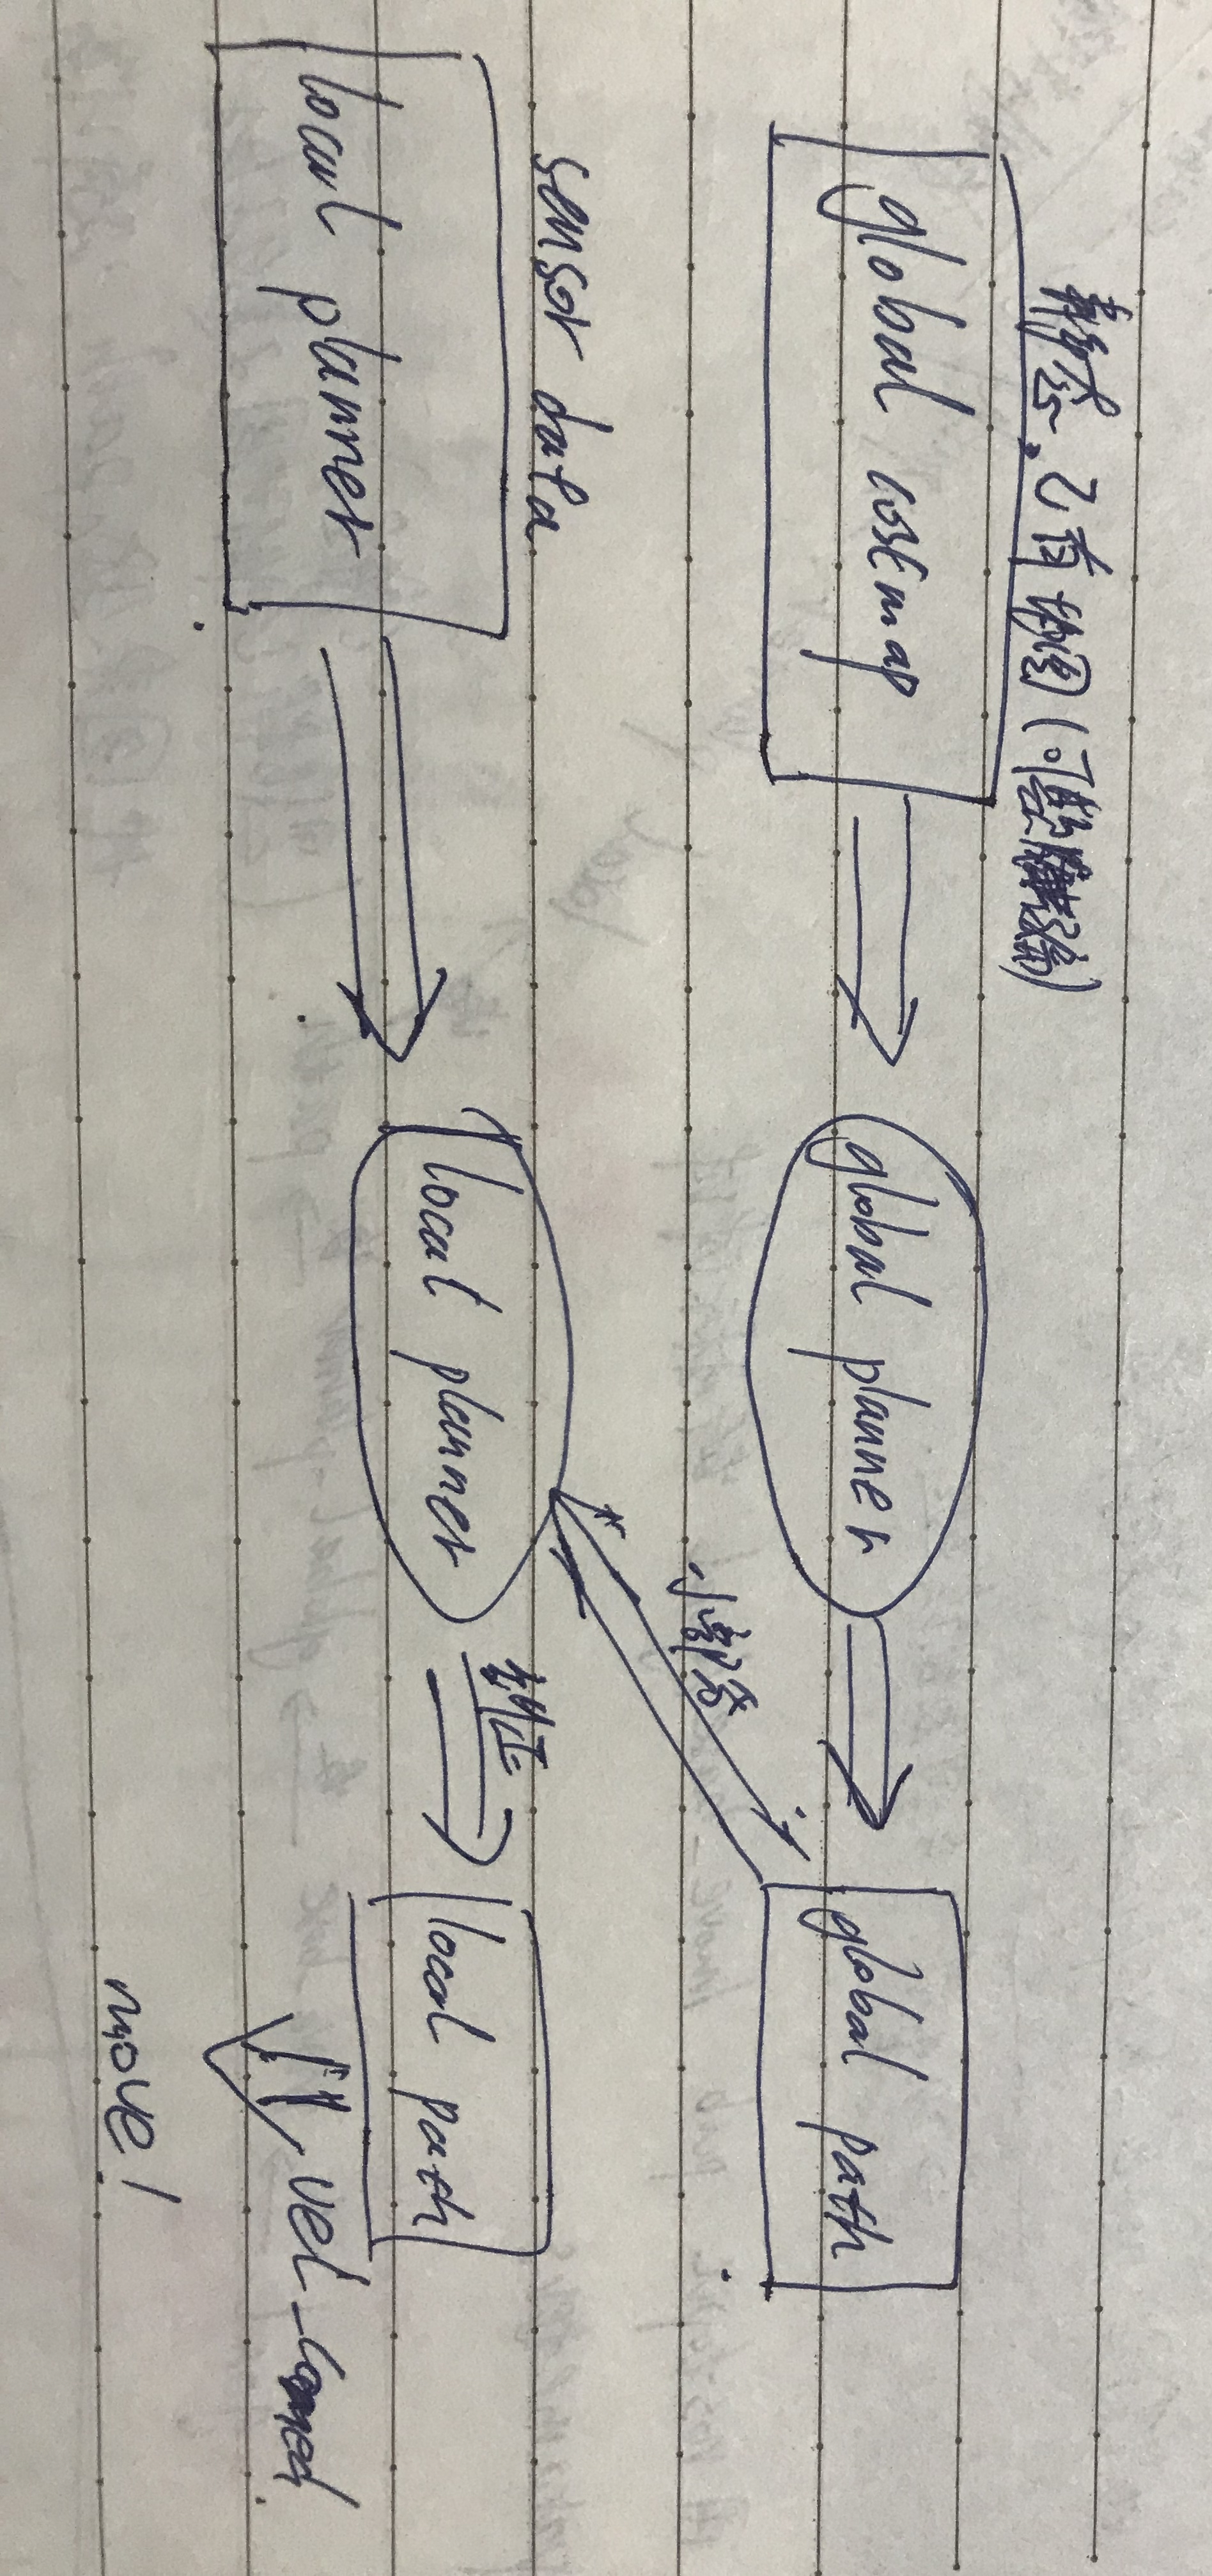 静态.已有地图(可
global costmap
global planner
global path
小部分
sensor data
local planner
local planner
矫正
local path
vel-comed
move!